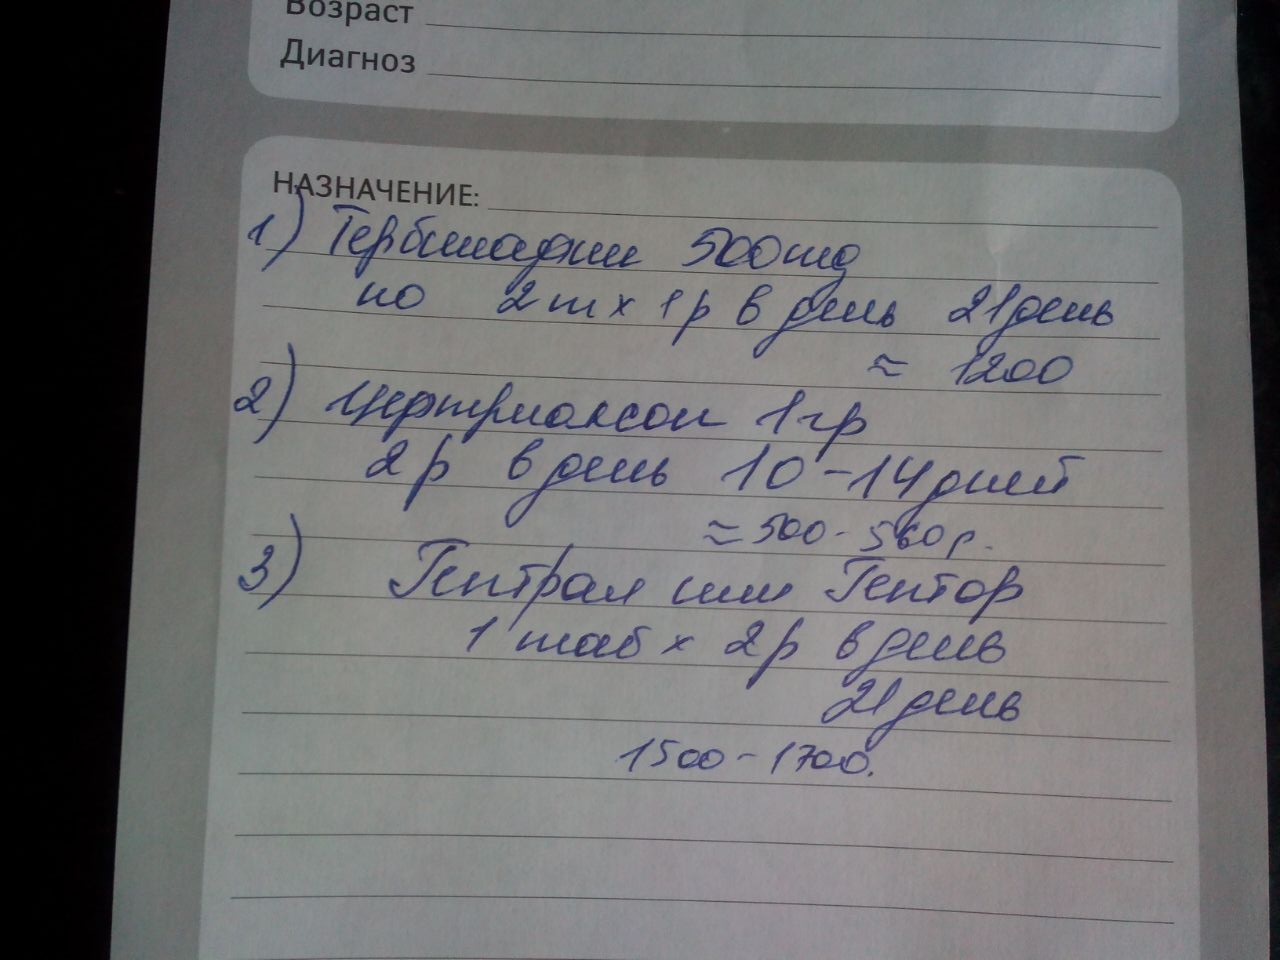 Возраст
Диагноз
НАЗНАЧЕНИЕ:
1) 500mg
по 2т х 1р в день 21 день
≈ 1200
2) Цефтриаксон 1гр
2р в день 10-14 дней
≈ 500-560р.
3) Гептрал или Гептор
1 таб х 2р в день
21 день
1500-1700.